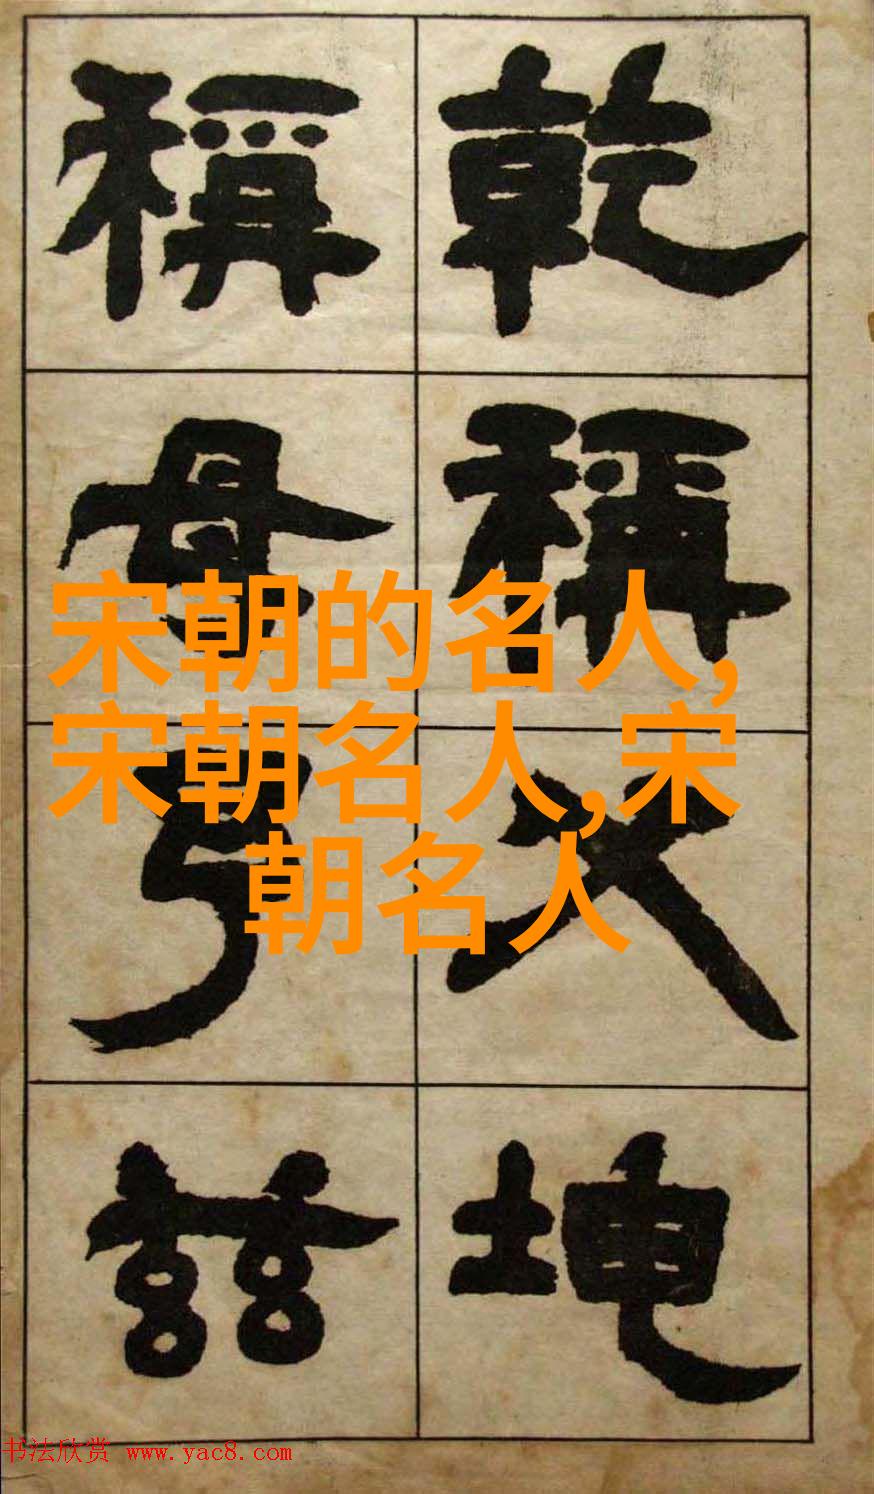 乾稱父坤
稱母予茲
宋朝的名人,
宋朝名人,宋
朝名人
书法欣赏 www.yac8.com